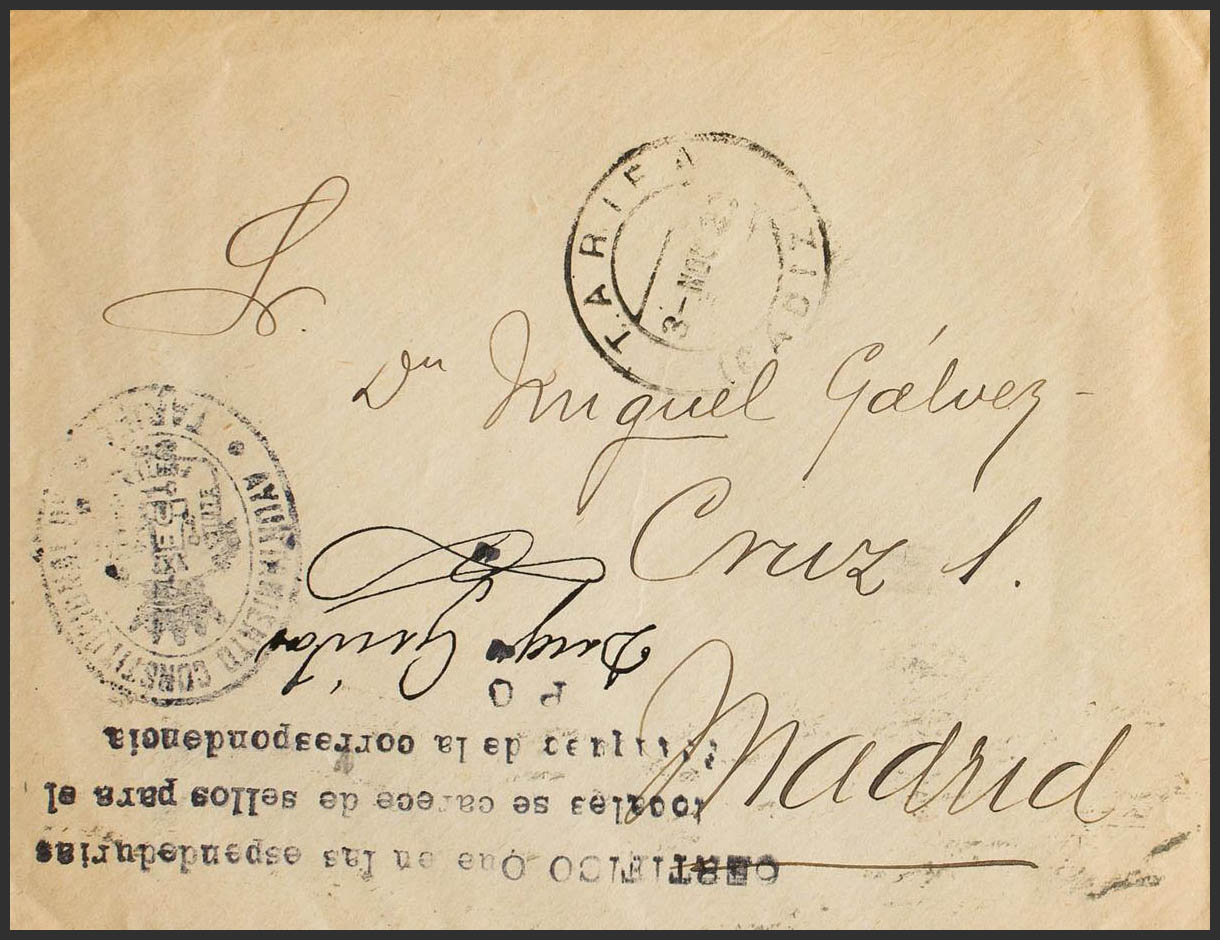 TARIFA
(CADIZ)
3-NOV
Sr.
Dn Miguel Gálvez-
Cruz 1.
Madrid
AYUNTAMIENTO CONSTITUCIONAL DE
TARIFA
CERTIFICO Que en las espendedurias
locales se carece de sellos para el
de la correspondencia
P O